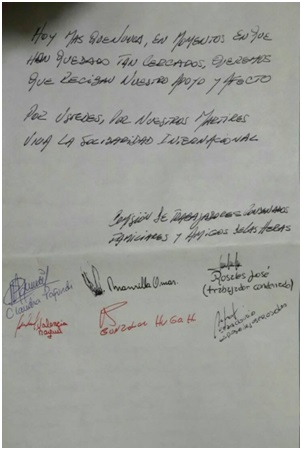 HOY MAS QUE NUNCA, EN MOMENTOS EN QUE
HAN QUEDADO TAN CERCADOS, QUEREMOS
QUE RECIBAN NUESTRO APOYO Y AFECTO
POR USTEDES, POR NUESTROS MARTIRES
VIVA LA SOLIDARIDAD INTERNACIONAL
COMISIÓN DE TRABAJADORES CONDENADOS
FAMILIARES Y AMIGOS DE LAS HERAS
Claudia
Mansilla Omar.
Rosales José
(trabajador condenado)
Valencia
GONZALEZ HUGO H